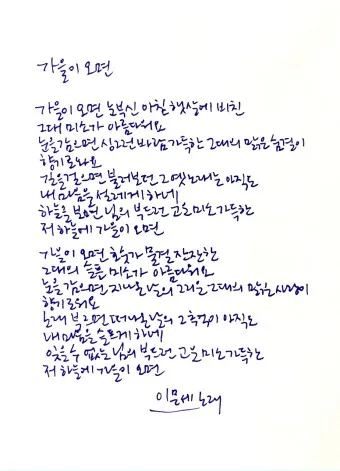 가을이 오면
가을이 오면 눈부신 아침 햇살에 비친
그대 미소가 아름다워요
눈을감으면 싱그런 바람가득한 그대의 맑은숨결이
향기로와요
길을걸으면 불러보던 그 옛노래는 아직도
내 마음을 설레게 하네
하늘을 보면 님의 부드런 고운미소가득한
저 하늘에 가을이 오면
가을이 오면 호숫가 물결 잔잔한
그대의 슬픈 미소가 아름다워요
눈을 감으면 지나온날의 그리운 그대의 맑은사랑이
향기로워요
노래 부르면 떠나온 날의 그 추억이 아직도
내 마음을 슬프게 하네
잊을 수 없는 님의 부드런 고운미소가득한
저 하늘에 가을이 오면
이문세 노래